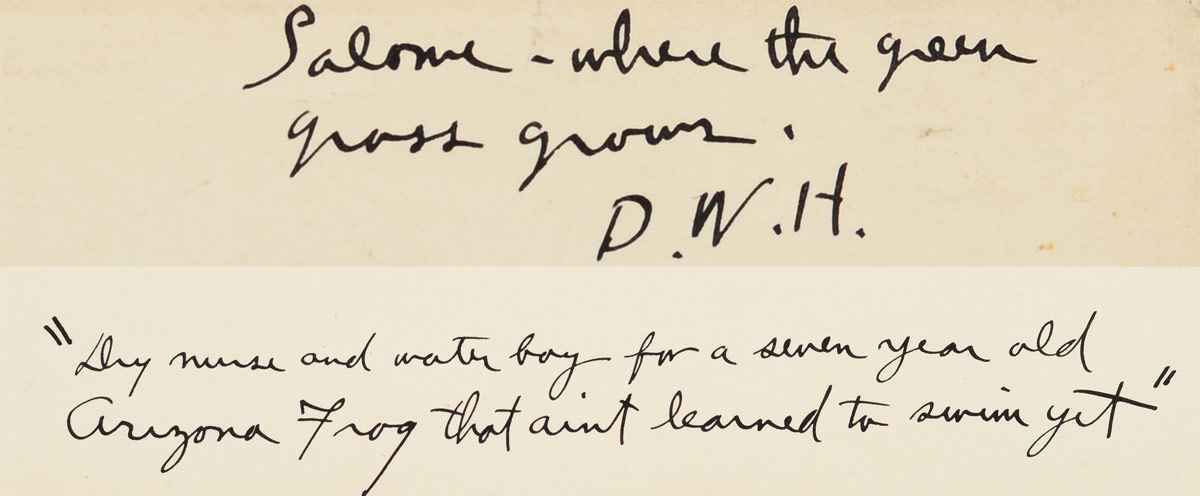 Salome - where the green
grass grows.
D.W.H.
"Dry nurse and water boy for a seven year old
Arizona Frog that aint learned to swim yet"